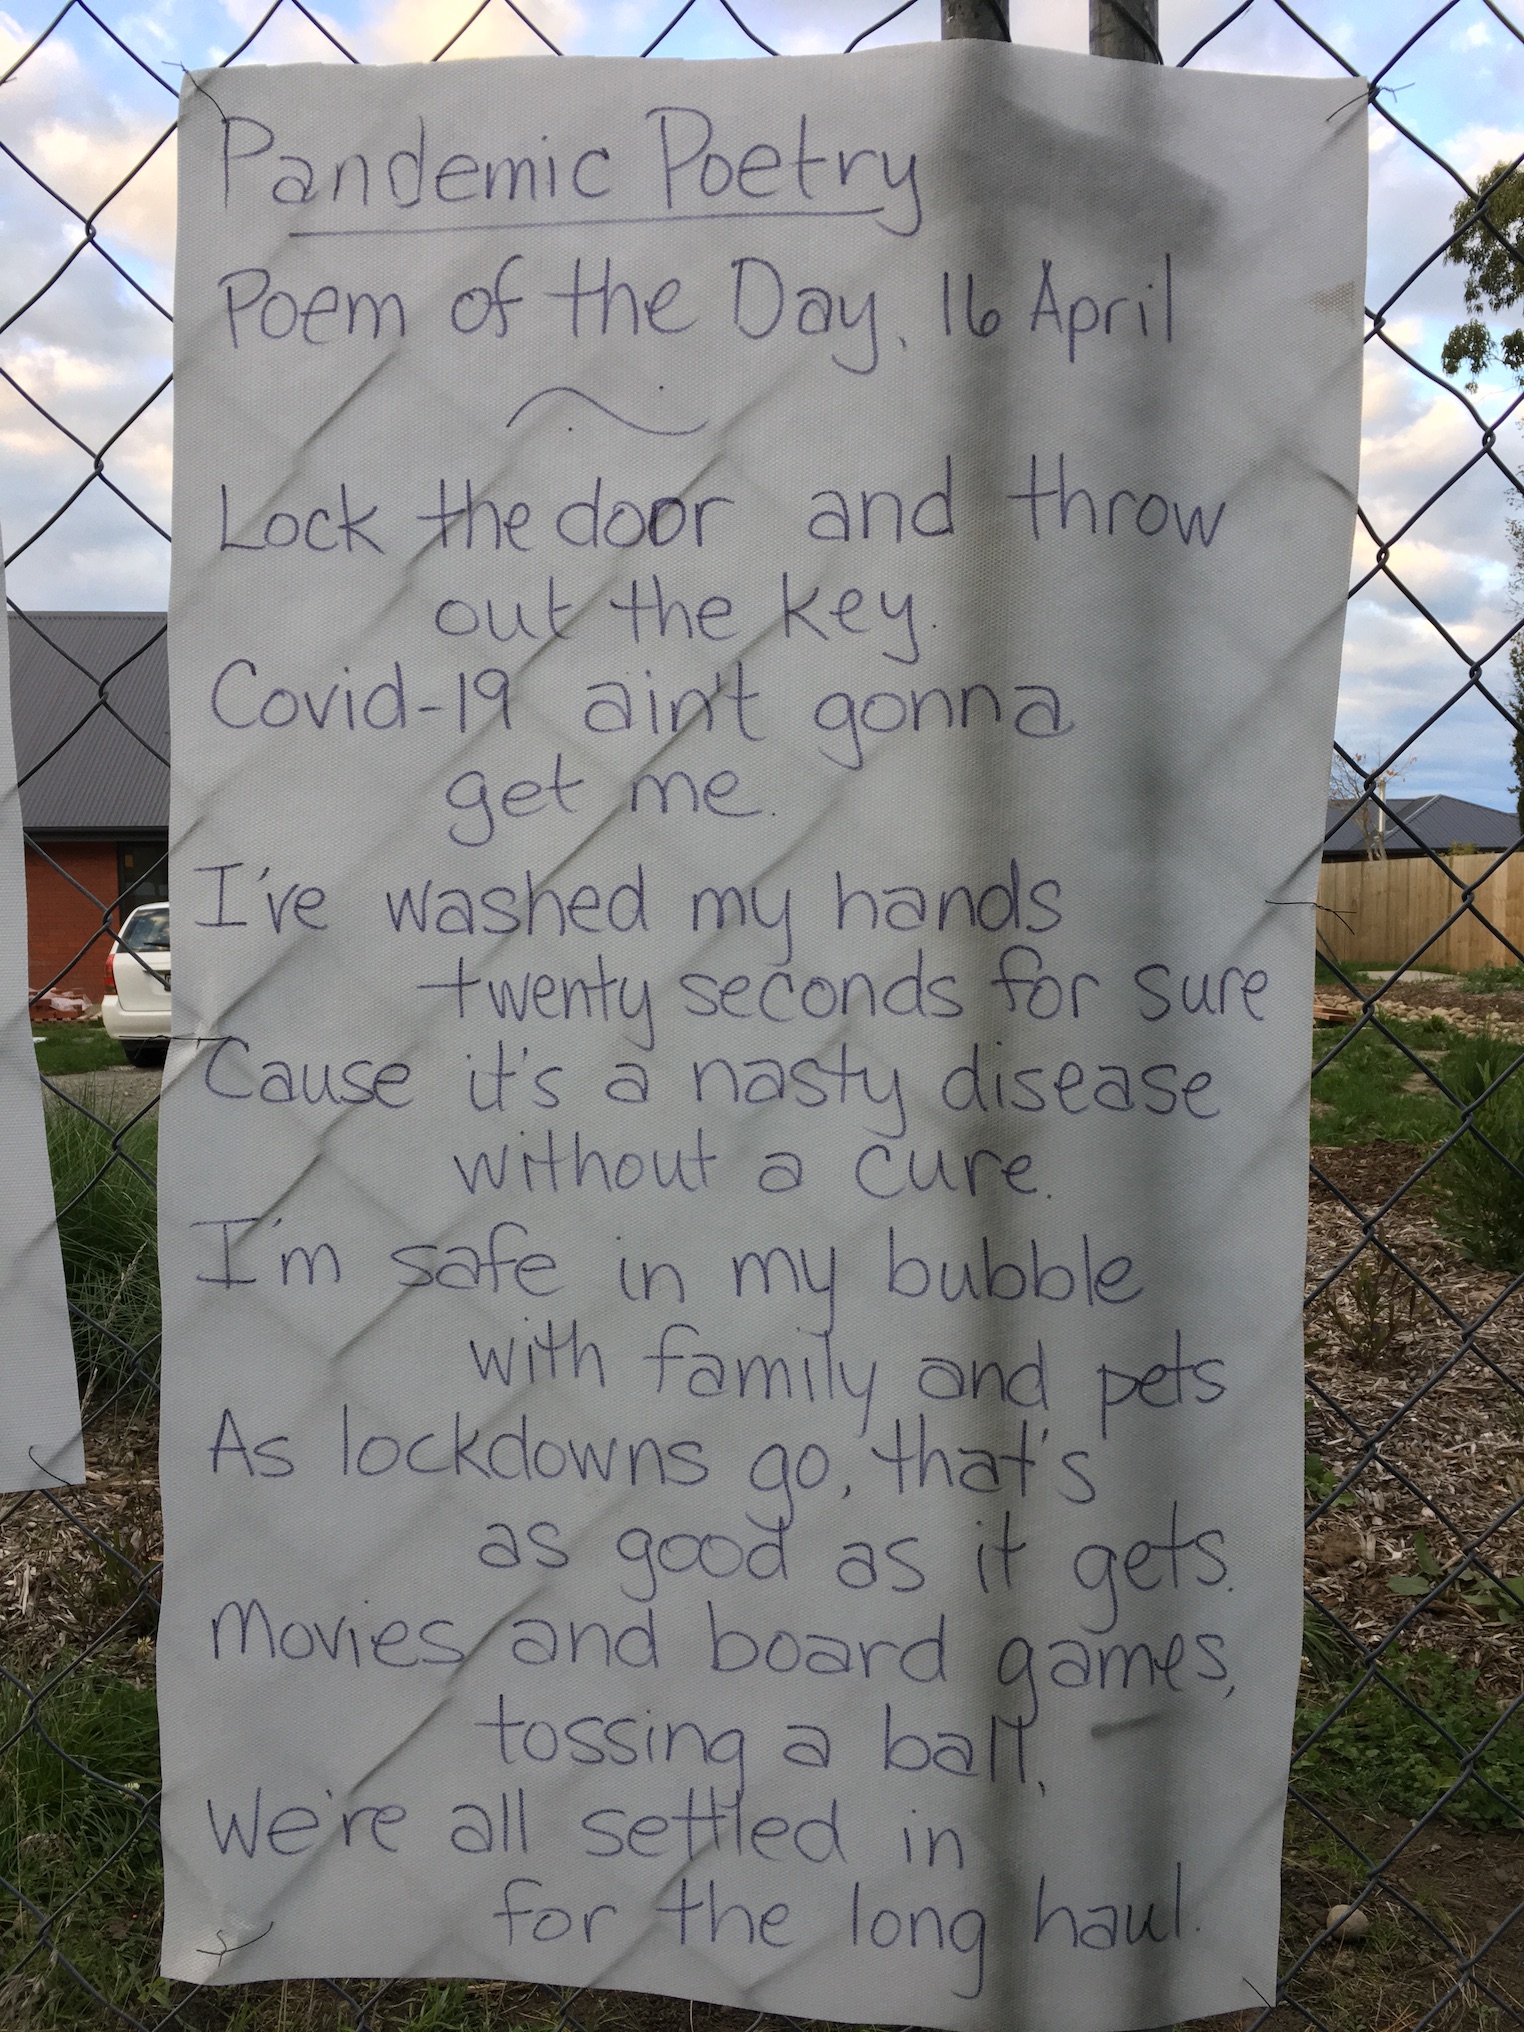 Pandemic Poetry
Poem of the Day, 16 April
Lock the door and throw
out the key.
Covid-19 ain't gonna
get me.
I've washed my hands
twenty seconds for sure
'Cause it's a nasty disease
without a cure.
I'm safe in my bubble
with family and pets
As lockdowns go, that's
as good as it gets.
Movies and board games,
tossing a ball,
We're all settled in
for the long haul.